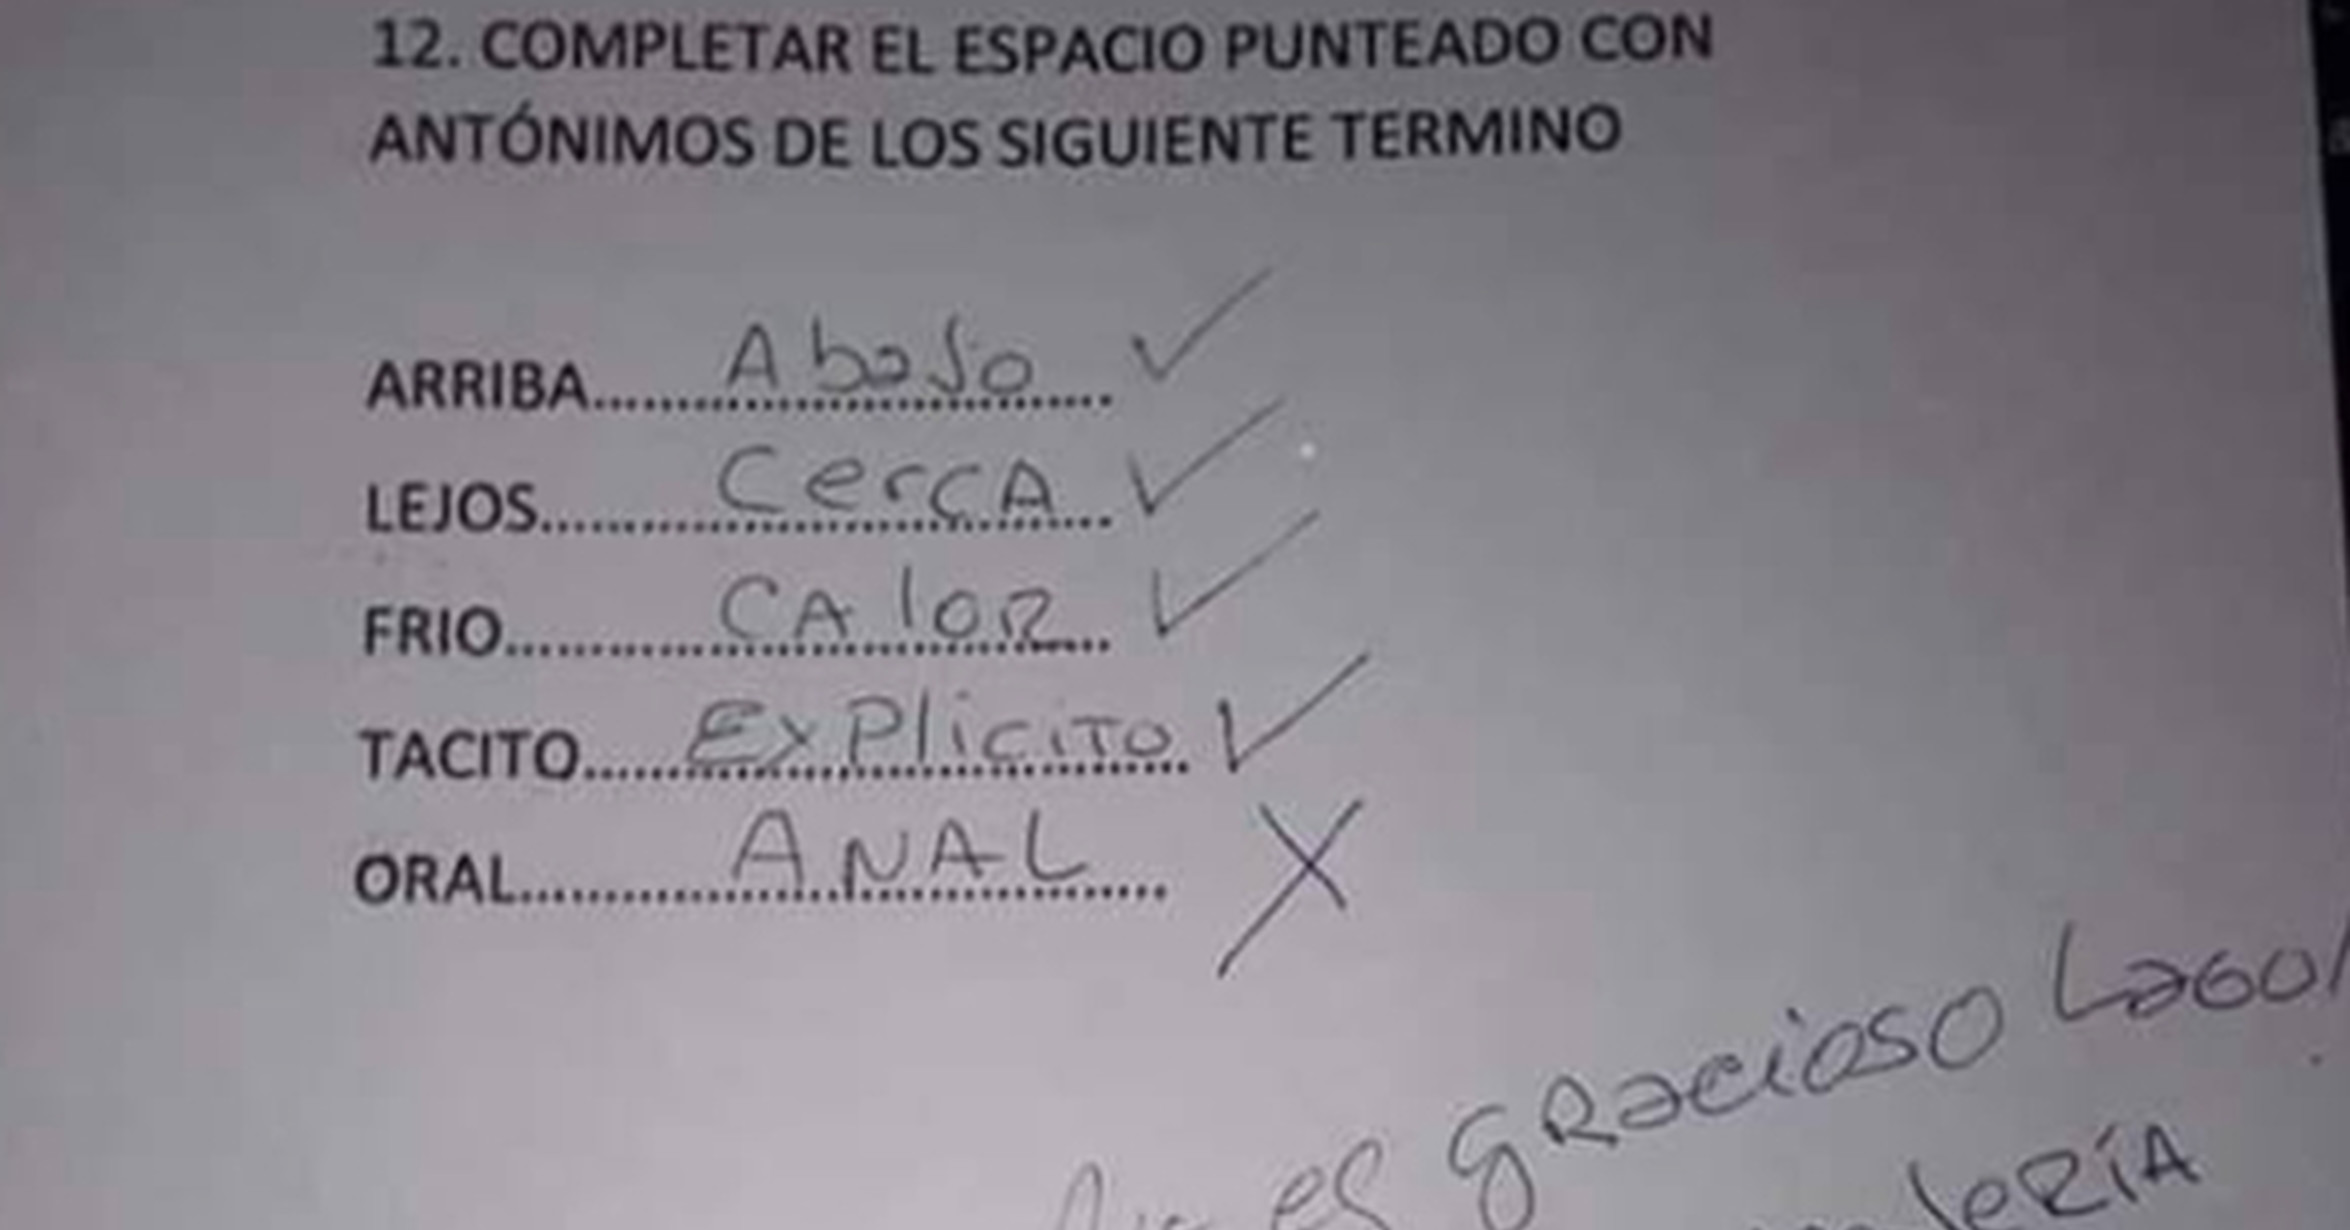 12. COMPLETAR EL ESPACIO PUNTEADO CON
ANTÓNIMOS DE LOS SIGUIENTE TERMINO
ARRIBA.......... Abajo ..........
LEJOS.......... CercA ..........
FRIO.......... CAloR ..........
TACITO.......... ExPlicito ..........
ORAL.......... ANAL ..........
es gRacioso